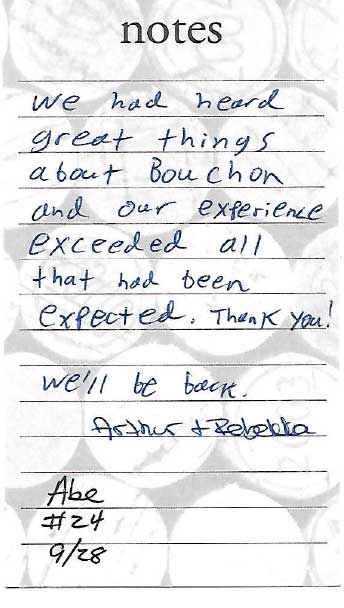 notes
we had heard
great things
about Bouchon
and our experience
exceeded all
that had been
expected. Thank you!
we'll be back.
Arthur + Rebekka
Abe
#24
9/28